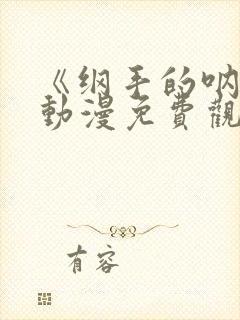 《纲手的呐
動漫免費觀
有容